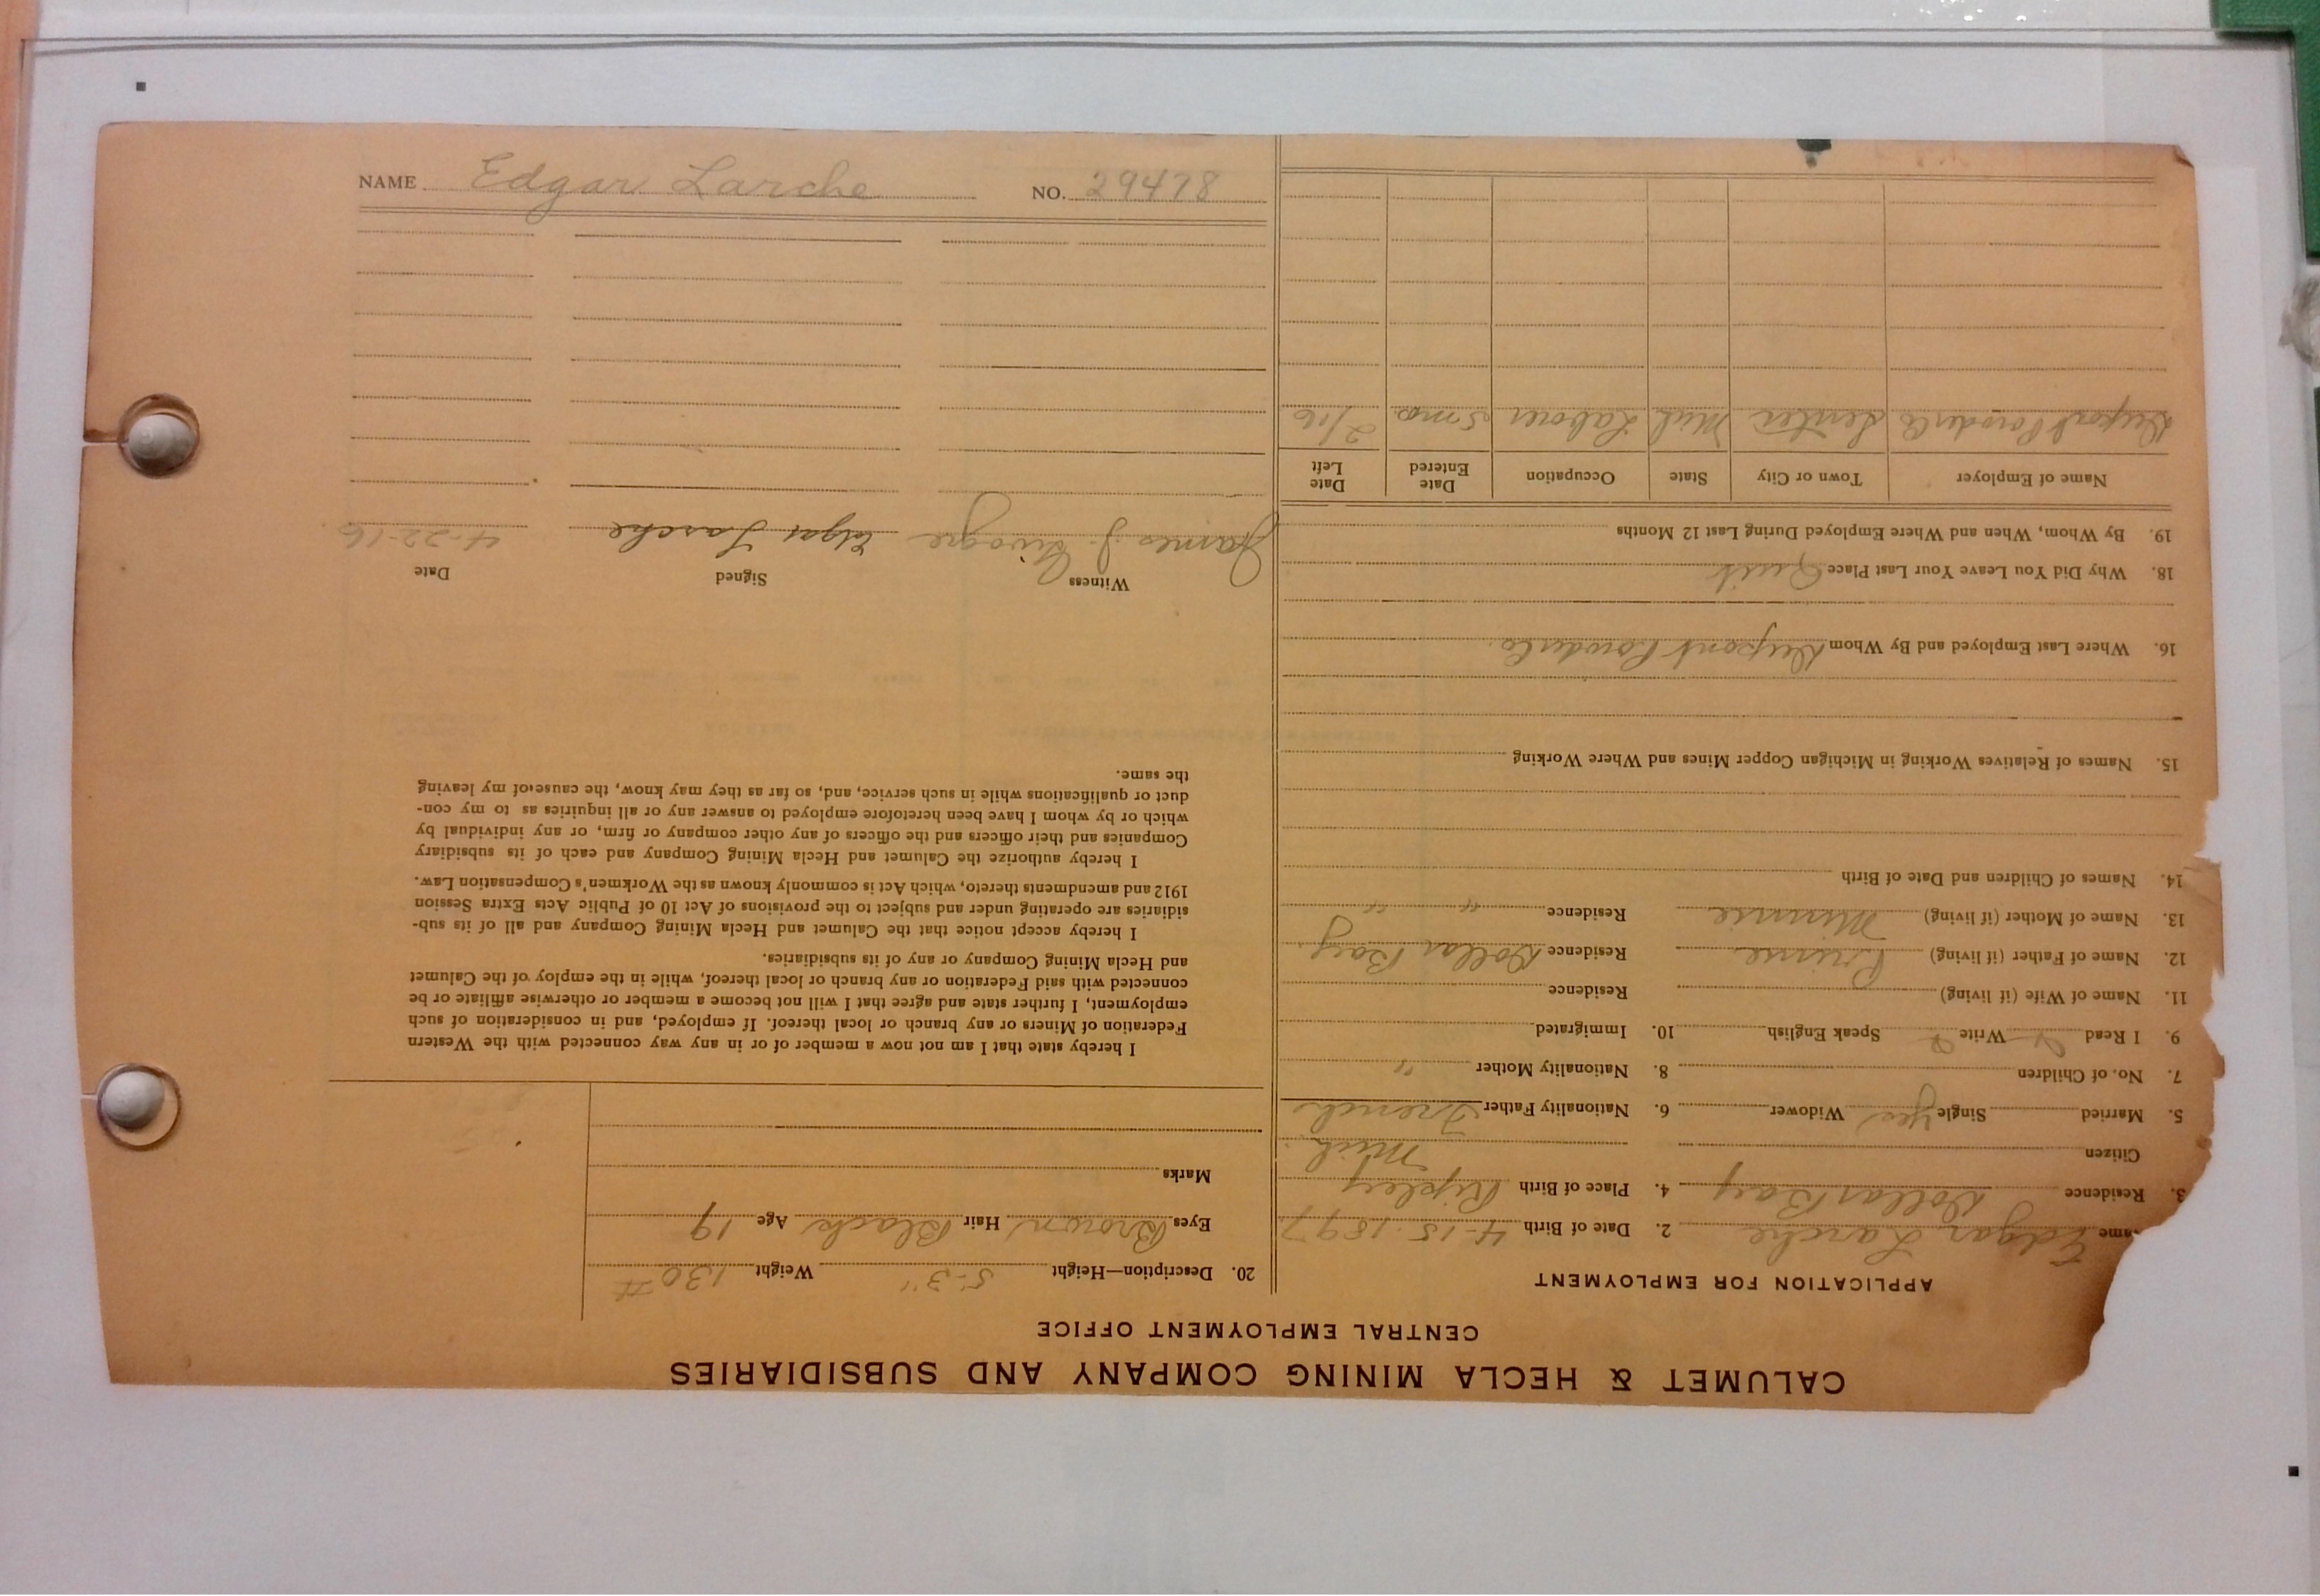 CALUMET & HECLA MINING COMPANY AND SUBSIDIARIES
CENTRAL EMPLOYMENT OFFICE
APPLICATION FOR EMPLOYMENT
ame Edgar Larche 2. Date of Birth 4-15-1897
3. Residence Dollar Bay 4. Place of Birth Ripley
Citizen Mich.
5. Married Single yes Widower 6. Nationality Father French
7. No. of Children 8. Nationality Mother "
9. I Read Write Speak English 10. Immigrated
11. Name of Wife (if living) Residence
12. Name of Father (if living) Prime Residence Dollar Bay
13. Name of Mother (if living) Minnie Residence " "
14. Names of Children and Date of Birth
15. Names of Relatives Working in Michigan Copper Mines and Where Working
16. Where Last Employed and By Whom Dupont Powder Co.
18. Why Did You Leave Your Last Place Quit
19. By Whom, When and Where Employed During Last 12 Months
Name of Employer Town or City State Occupation Date Entered Date Left
Dupont Powder Co Mich Laborer 5 mos 2/16
20. Description—Height 5-3" Weight 130 #
Eyes Brown Hair Black Age 19
Marks
I hereby state that I am not now a member of or in any way connected with the Western
Federation of Miners or any branch or local thereof. If employed, and in consideration of such
employment, I further state and agree that I will not become a member or otherwise affiliate or be
connected with said Federation or any branch or local thereof, while in the employ of the Calumet
and Hecla Mining Company or any of its subsidiaries.
I hereby accept notice that the Calumet and Hecla Mining Company and all of its sub-
sidiaries are operating under and subject to the provisions of Act 10 of Public Acts Extra Session
1912 and amendments thereto, which Act is commonly known as the Workmen's Compensation Law.
I hereby authorize the Calumet and Hecla Mining Company and each of its subsidiary
Companies and their officers and the officers of any other company or firm, or any individual by
which or by whom I have been heretofore employed to answer any or all inquiries as to my con-
duct or qualifications while in such service, and, so far as they may know, the cause of my leaving
the same.
Witness Signed Date
James J. Edgar Larche 4-22-16
NAME Edgar Larche NO. 29478